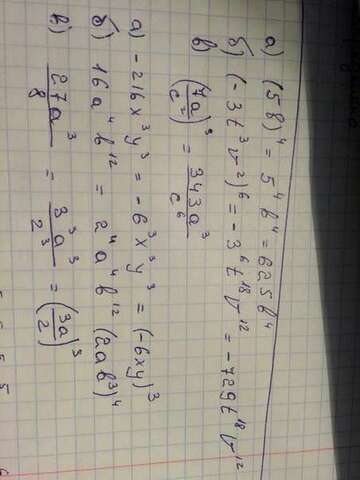 а) (5в)⁴ = 5⁴в⁴ = 625в⁴
б) (-3t³v²)⁶ = -3⁶t¹⁸v¹² = -729t¹⁸v¹²
в) (7a/c²)³ = 343a³/c⁶
а) -216x³y³ = -6³x³y³ = (-6xy)³
б) 16a⁴b¹² = 2⁴a⁴b¹² (2ab³)⁴
в) 27a³/8 = 3³a³/2³ = (3a/2)³